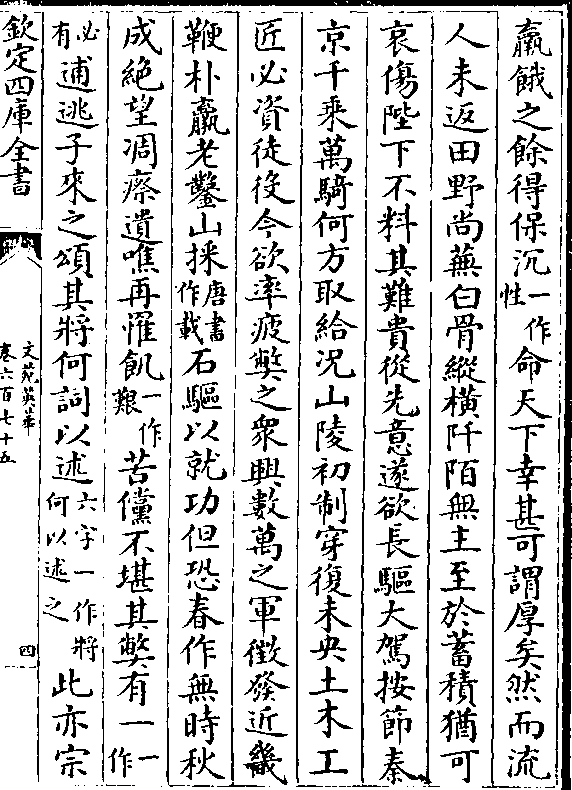 羸餓之餘得保沉一作性命天下幸甚可謂厚矣然而流
人未返田野尚蕪白骨縱橫阡陌無主至於蓄積猶可
哀傷陛下不料其難貴從先意遂欲長驅大駕按節秦
京千乘萬騎何方取給況山陵初制穿復未央土木工
匠必資徒役今欲率疲弊之衆興數萬之軍徵發近畿
鞭朴羸老鑿山採唐書作載石驅以就功但恐春作無時秋
成絶望凋瘵遺噍再罹飢一作艱苦儻不堪其弊有一一作
必有逋逃子來之頌其將何詞以述六字一作將何以述之此亦宗
欽定四庫全書
文苑英華
卷六百七十五
四